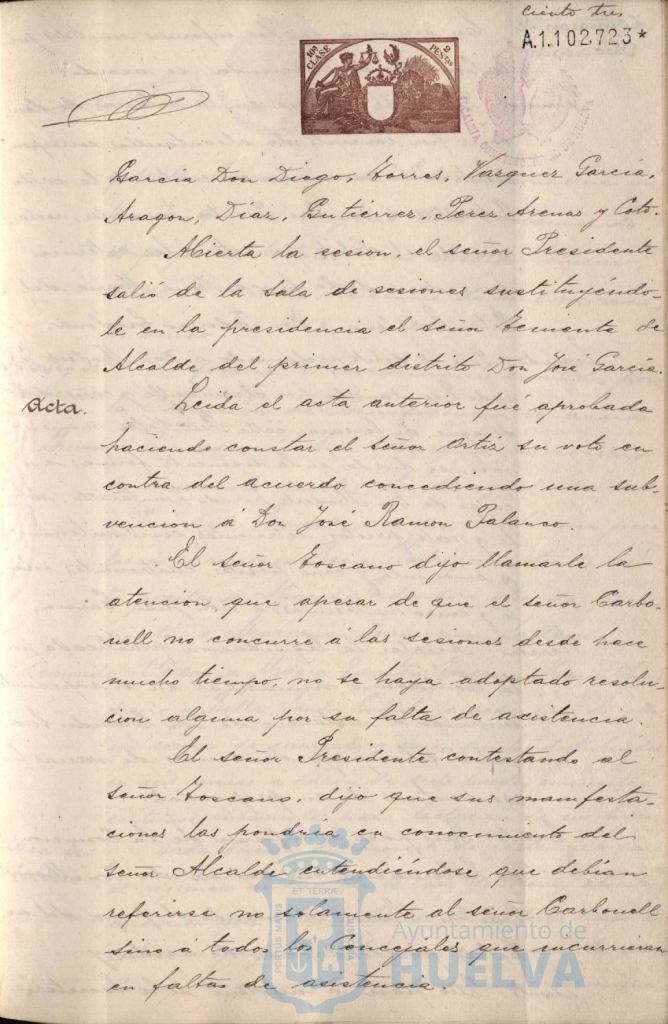 ciento tres
A.1.102,723*
10ª CLASE
2 PESETAS
Garcia Don Diego, Torres, Vazquez Garcia,
Aragon, Diaz, Gutierrez, Perez Arenas y Coto.
Abierta la sesion, el señor Presidente
salió de la sala de sesiones sustituyéndo-
le en la presidencia el señor Teniente de
Alcalde del primer distrito Don José Garcia.
Acta.
Leida el acta anterior fué aprobada
haciendo constar el señor Ortiz su voto en
contra del acuerdo concediendo una sub-
vencion á Don José Ramon Palanco.
El señor Toscano dijo llamarle la
atencion que apesar de que el señor Carbo-
nell no concurre á las sesiones desde hace
mucho tiempo, no se haya adoptado resolu-
cion alguna por su falta de asistencia.
El señor Presidente contestando al
señor Toscano, dijo que sus manifesta-
ciones las pondria en conocimiento del
señor Alcalde entendiéndose que debian
referirse no solamente al señor Carbonell
sino a todos los Concejales que incurrieran
en faltas de asistencia.
PORTUS MARIS ET TERRÆ
Ayuntamiento de
HUELVA